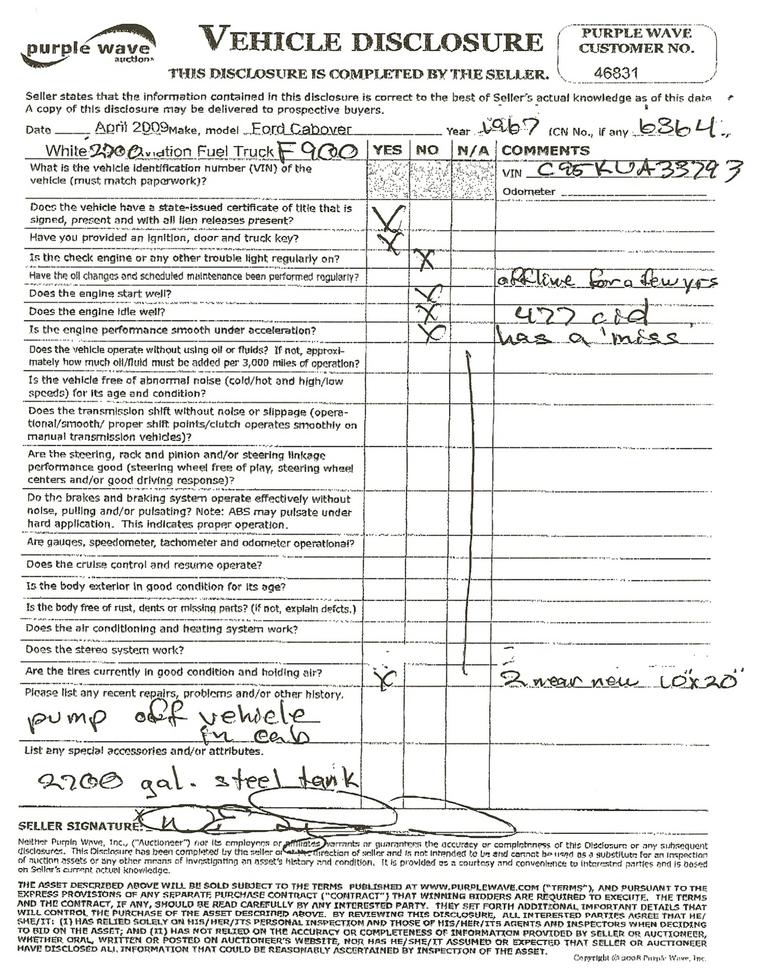 purple wave
auction
VEHICLE DISCLOSURE
THIS DISCLOSURE IS COMPLETED BY THE SELLER.
PURPLE WAVE
CUSTOMER NO.
46831
Seller states that the information contained in this disclosure is correct to the best of Seller's actual knowledge as of this date.
A copy of this disclosure may be delivered to prospective buyers.
Date April 2009 Make, model Ford Cabover Year 1967 ICN No., if any 6364
White 2200 Aviation Fuel Truck F900 YES NO N/A COMMENTS
What is the vehicle identification number (VIN) of the
vehicle (must match paperwork)?
VIN C95KUA33793
Odometer
Does the vehicle have a state-issued certificate of title that is
signed, present and with all lien releases present? X
Have you provided an ignition, door and truck key? X
Is the check engine or any other trouble light regularly on? X
Have the oil changes and scheduled maintenance been performed regularly? offline for a few yrs
Does the engine start well? X
Does the engine idle well? X 477 cid
Is the engine performance smooth under acceleration? X has a 'miss
Does the vehicle operate without using oil or fluids? If not, approxi-
mately how much oil/fluid must be added per 3,000 miles of operation?
Is the vehicle free of abnormal noise (cold/hot and high/low
speeds) for its age and condition?
Does the transmission shift without noise or slippage (opera-
tional/smooth/ proper shift points/clutch operates smoothly on
manual transmission vehicles)?
Are the steering, rack and pinion and/or steering linkage
performance good (steering wheel free of play, steering wheel
centers and/or good driving response)?
Do the brakes and braking system operate effectively without
noise, pulling and/or pulsating? Note: ABS may pulsate under
hard application. This indicates proper operation.
Are gauges, speedometer, tachometer and odometer operational?
Does the cruise control and resume operate?
Is the body exterior in good condition for its age?
Is the body free of rust, dents or missing parts? (if not, explain defcts.)
Does the air conditioning and heating system work?
Does the stereo system work?
Are the tires currently in good condition and holding air? X 2 near new 10"x20"
Please list any recent repairs, problems and/or other history.
pump off vehicle
in cab
List any special accessories and/or attributes.
2200 gal. steel tank
SELLER SIGNATURE:
Neither Purple Wave, Inc., ("Auctioneer") nor its employees or affiliates warrants or guarantees the accuracy or completness of this Disclosure or any subsequent
disclosures. This Disclosure has been completed by the seller or at the direction of seller and is not intended to be and cannot be used as a substitute for an inspection
of auction assets or any other means of investigating an asset's history and condition. It is provided as a courtesy and convenience to interested parties and is based
on Seller's current actual knowledge.
THE ASSET DESCRIBED ABOVE WILL BE SOLD SUBJECT TO THE TERMS PUBLISHED AT WWW.PURPLEWAVE.COM ("TERMS"), AND PURSUANT TO THE
EXPRESS PROVISIONS OF ANY SEPARATE PURCHASE CONTRACT ("CONTRACT") THAT WINNING BIDDERS ARE REQUIRED TO EXECUTE. THE TERMS
AND THE CONTRACT, IF ANY, SHOULD BE READ CAREFULLY BY ANY INTERESTED PARTY. THEY SET FORTH ADDITIONAL IMPORTANT DETAILS THAT
WILL CONTROL THE PURCHASE OF THE ASSET DESCRIBED ABOVE. BY REVIEWING THIS DISCLOSURE, ALL INTERESTED PARTIES AGREE THAT HE/
SHE/IT: (I) HAS RELIED SOLELY ON HIS/HER/ITS PERSONAL INSPECTION AND THOSE OF HIS/HER/ITS AGENTS AND INSPECTORS WHEN DECIDING
TO BID ON THE ASSET; AND (II) HAS NOT RELIED ON THE ACCURACY OR COMPLETENESS OF INFORMATION PROVIDED BY SELLER OR AUCTIONEER,
WHETHER ORAL, WRITTEN OR POSTED ON AUCTIONEER'S WEBSITE, NOR HAS HE/SHE/IT ASSUMED OR EXPECTED THAT SELLER OR AUCTIONEER
HAVE DISCLOSED ALL INFORMATION THAT COULD BE REASONABLY ASCERTAINED BY INSPECTION OF THE ASSET.
Copyright © 2008 Purple Wave, Inc.